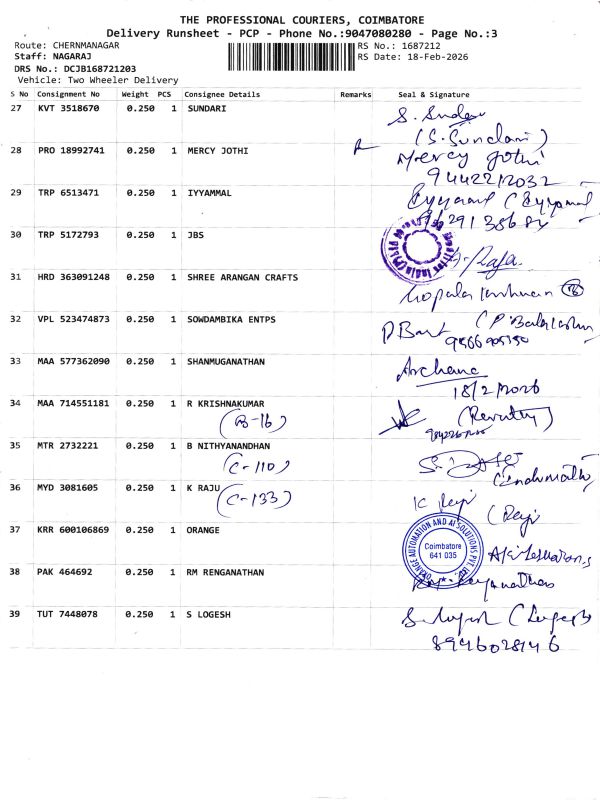 THE PROFESSIONAL COURIERS, COIMBATORE
Delivery Runsheet - PCP - Phone No.:9047080280 - Page No.:3
Route: CHERNMANAGAR
RS No.: 1687212
Staff: NAGARAJ
RS Date: 18-Feb-2026
DRS No.: DCJB168721203
Vehicle: Two Wheeler Delivery
S No Consignment No Weight PCS Consignee Details Remarks Seal & Signature
27 KVT 3518670 0.250 1 SUNDARI
28 PRO 18992741 0.250 1 MERCY JOTHI Mercy Jothi
29 TRP 6513471 0.250 1 IYYAMMAL
30 TRP 5172793 0.250 1 JBS Raja
31 HRD 363091248 0.250 1 SHREE ARANGAN CRAFTS
32 VPL 523474873 0.250 1 SOWDAMBIKA ENTPS
33 MAA 577362090 0.250 1 SHANMUGANATHAN Archana
18/2/2026
34 MAA 714551181 0.250 1 R KRISHNAKUMAR
(B-16)
35 MTR 2732221 0.250 1 B NITHYANANDHAN
(C-110)
36 MYD 3081605 0.250 1 K RAJU
(C-133)
37 KRR 600106869 0.250 1 ORANGE
ORANGE AUTOMATION AND AI SOLUTIONS PVT LTD
Coimbatore
641 035
38 PAK 464692 0.250 1 RM RENGANATHAN
39 TUT 7448078 0.250 1 S LOGESH
8946028146